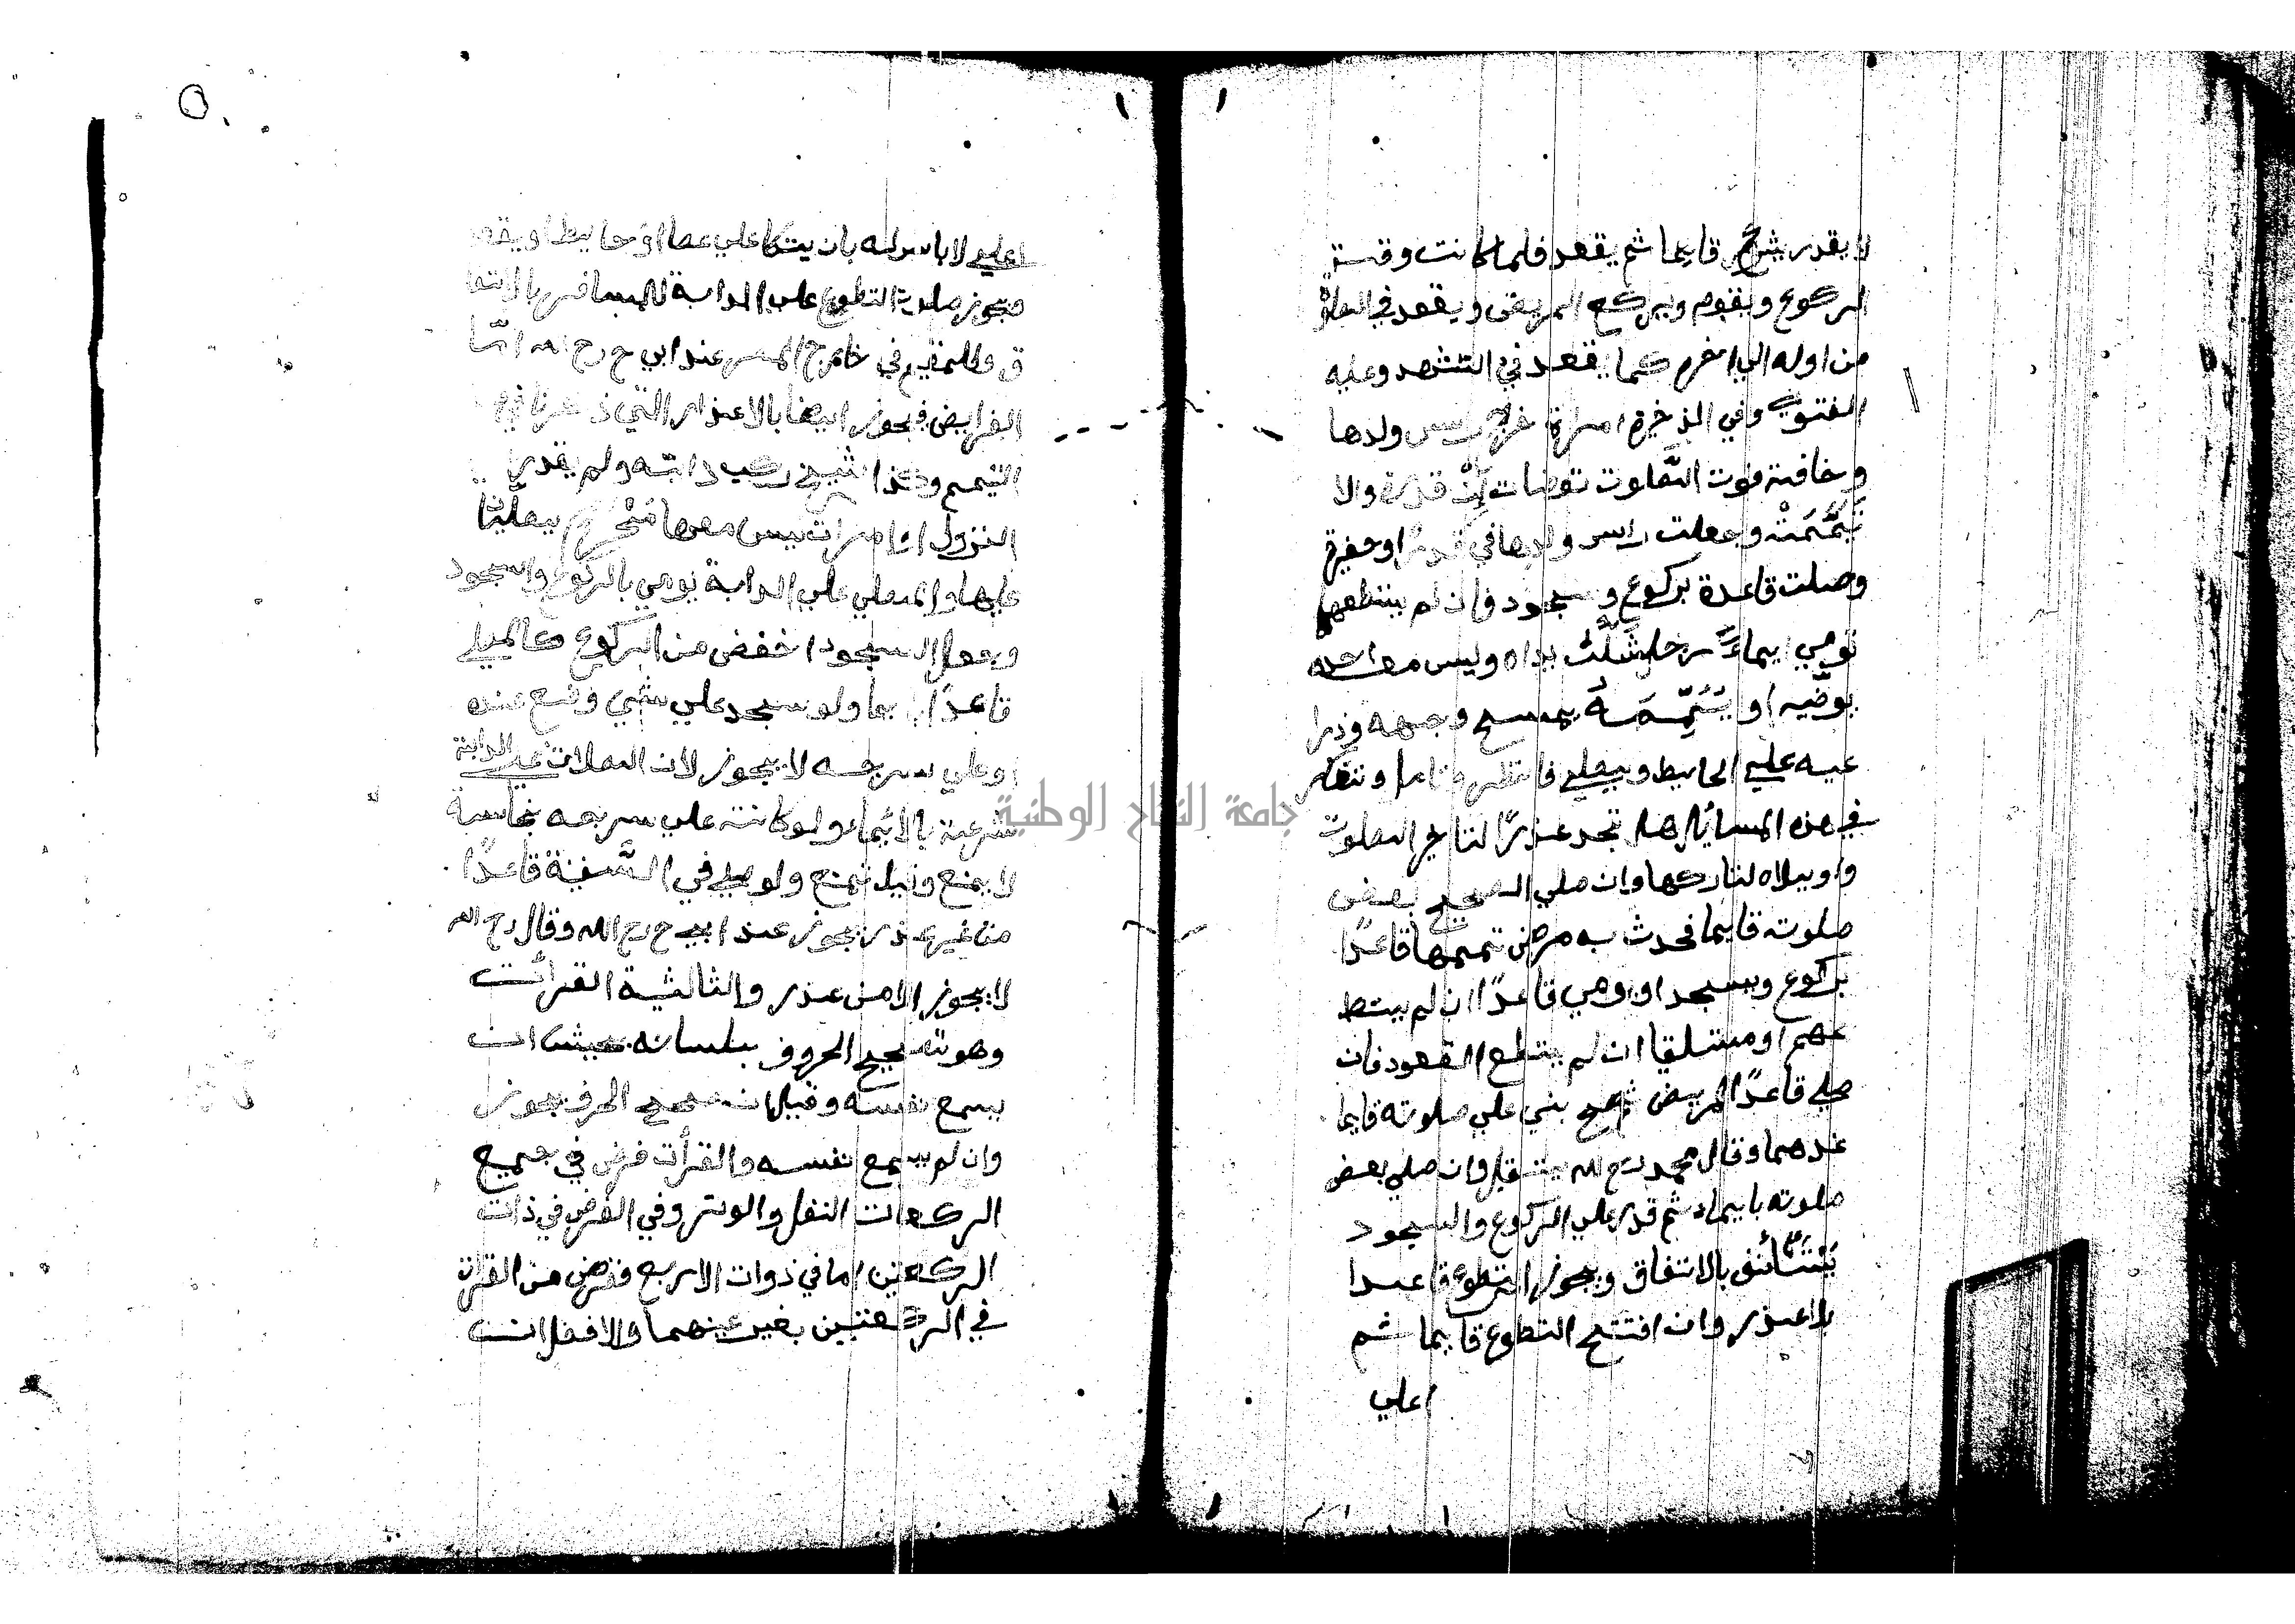 لا يقدر يشرع قايما ثم يقعد فلما كانت وقت
الركوع ويقوم ويركع المريض ويقعد في الصلاة
من اوله الي اخره كما يقعد في التشهد وعليه
الفتوي وفي الذخيرة امراة خرج راس ولدها
وخافت فوت الصلوت توضات ان قدرة والا
تيممت وجعلت راس ولدها في قدر او حفيرة
وصلت قاعدة بركوع وسجود فان لم يستطعها
تومي ايماء رجل شلت يداه وليس معه احد
يوضيه او ييممه يمسح وجهه وذرا
عيه علي الحايط ويصلي فانظر وتامل وتفكر
في هذه المسايل هل تجد عذرا لتاخير الصلوت
واويلاه لتاركها وان صلي الصحيح بعض
صلوته قايما فحدث به مرض تممها قاعدا
بركوع ويسجد او يومي قاعدا ان لم يستط
عهم او مستلقيا ان لم يستطع القعود فان
صلي قاعدا لمريض ثم صح بني علي صلوته قايما
عندهما وقال محمد رح الله يستقبل وان صلي بعض
صلوته بايماء ثم قدر علي الركوع والسجود
يستانف بالاتفاق ويجوز التطوع قاعدا
بلا عذر وان افتتح التطوع قايما ثم
اعلي
اعلي لا باس له بان يتكا علي عصا او حايط او يقعد
ويجوز صلوة التطوع علي الدابة للمسافر بالاتفا
ق وللمقيم في خارج المصر عند ابي ح رح الله اما
الفرايض فيجوز ايضا بالاعذار التي ذكرنا في
التيمم وكذا شيخ ركب دابته ولم يقدر
النزول او امرات ليس معها محرم يصليا
عليها والمصلي علي الدابة يومي بالركوع والسجود
وجعل السجود اخفض من الركوع كالمصلي
قاعدا ايما ولو سجد علي شيي وضع عنده
او علي سرجه لا يجوز لان الصلات علي الدابة
شرعية بالايماء ولو كانت علي سرجه نجاسة
لا يمنع وقيل تمنع ولو صلي في السفينة قاعدا
من غير عذر يجوز عند ابي ح رح الله وقال رح الله
لا يجوز الا من عذر والثالثة القرائت
وهو تصحيح الحروف بلسانه بحيث ان
يسمع نفسه وقيل ان صحح الحرف يجوز
وان لم يسمع نفسه والقرأت فرض في جميع
الركعات النفل والوتر وفي الفرض في ذات
الركعتين اما في ذوات الاربع ففرض من القرات
في الركعتين بغير عينهما والافضل ان
جامعة النجاح الوطنية